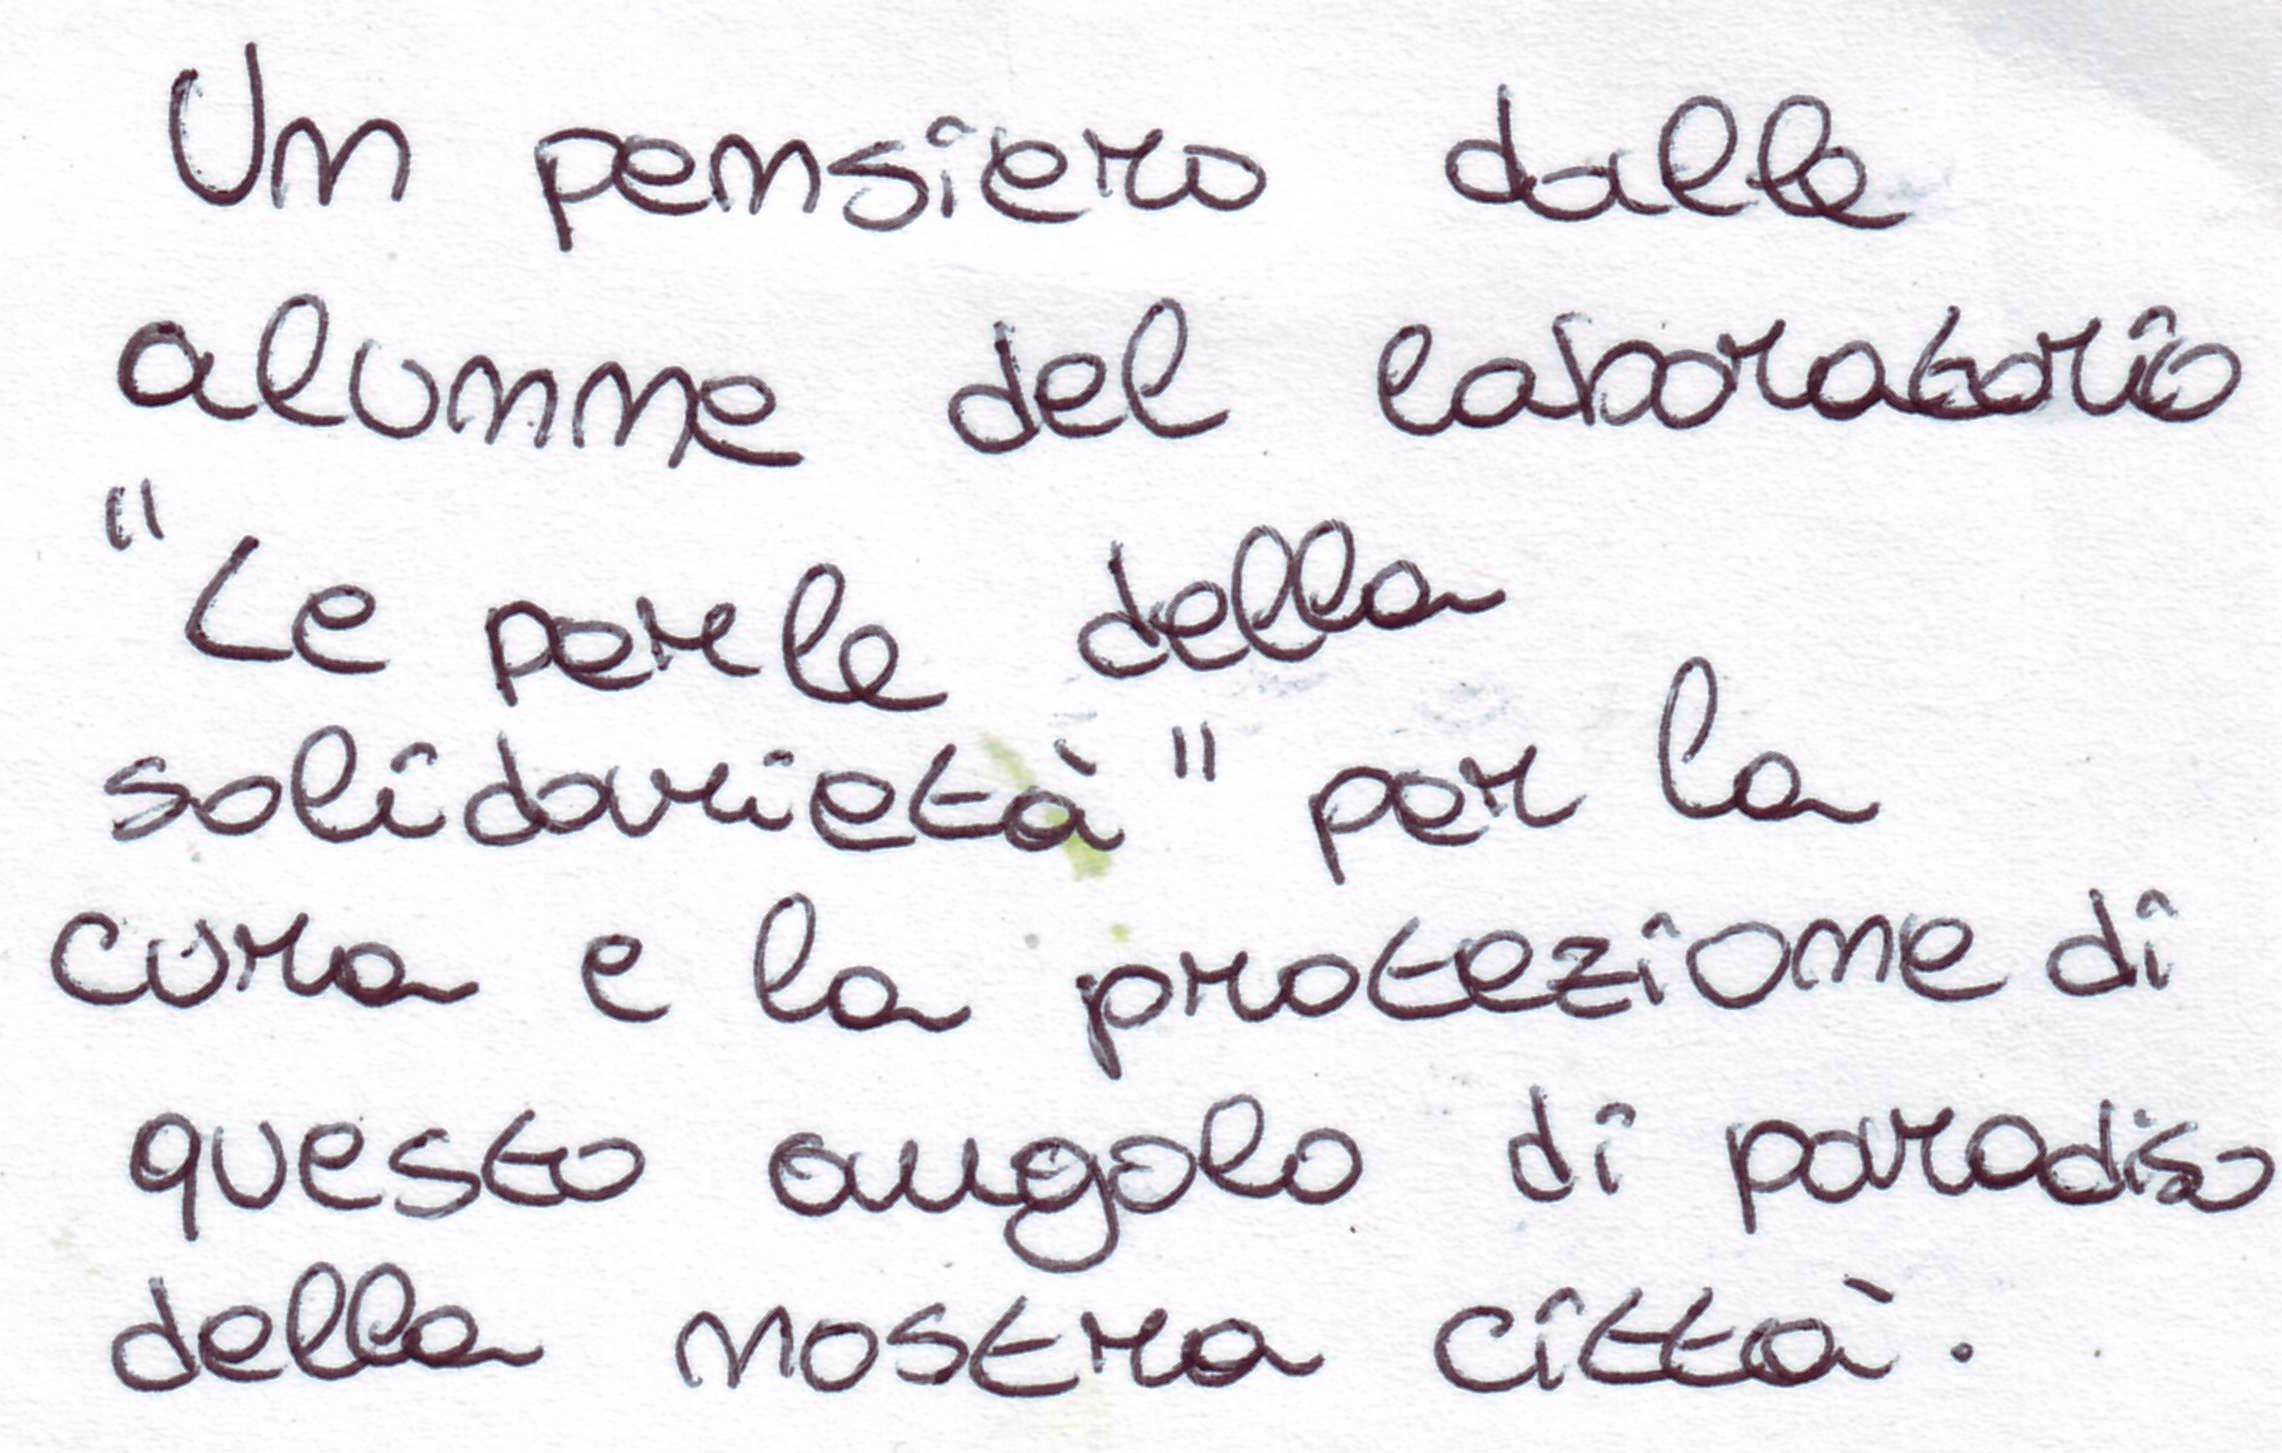 Un pensiero dalle
alunne del laboratorio
"Le perle della
solidarietà" per la
cura e la protezione di
questo angolo di paradiso
della nostra città.